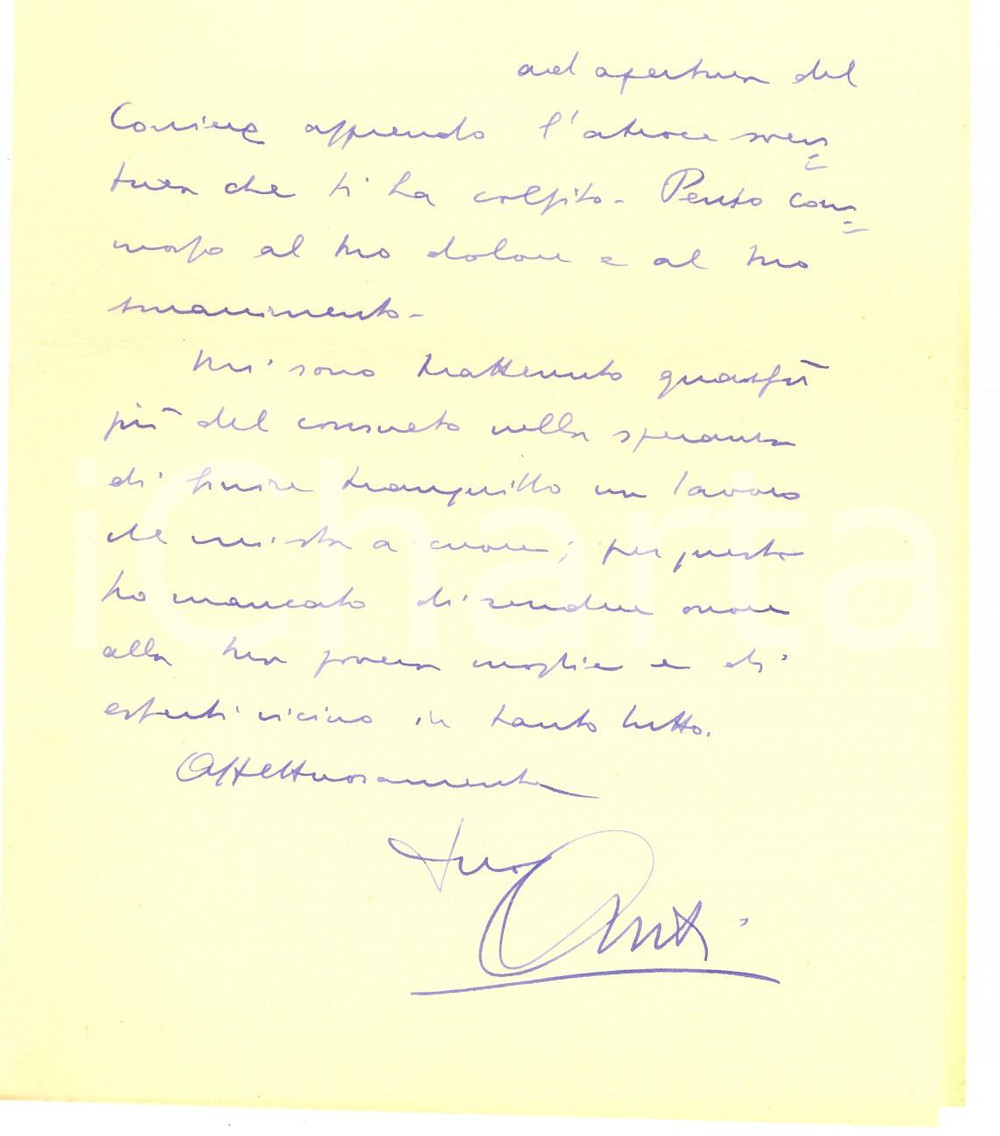 ad apertura del
Corriere apprendo l'atroce sven=
tura che ti ha colpito - Penso com=
mosso al tuo dolore e al tuo
smarrimento -
Mi sono trattenuto quassù
più del consueto nella speranza
di finire tranquillo un lavoro
che mi sta a cuore; per questo
ho mancato di rendere onore
alla tua povera moglie e di
esserti vicino in tanto lutto.
Affettuosamente
tuo Anti
iCharta